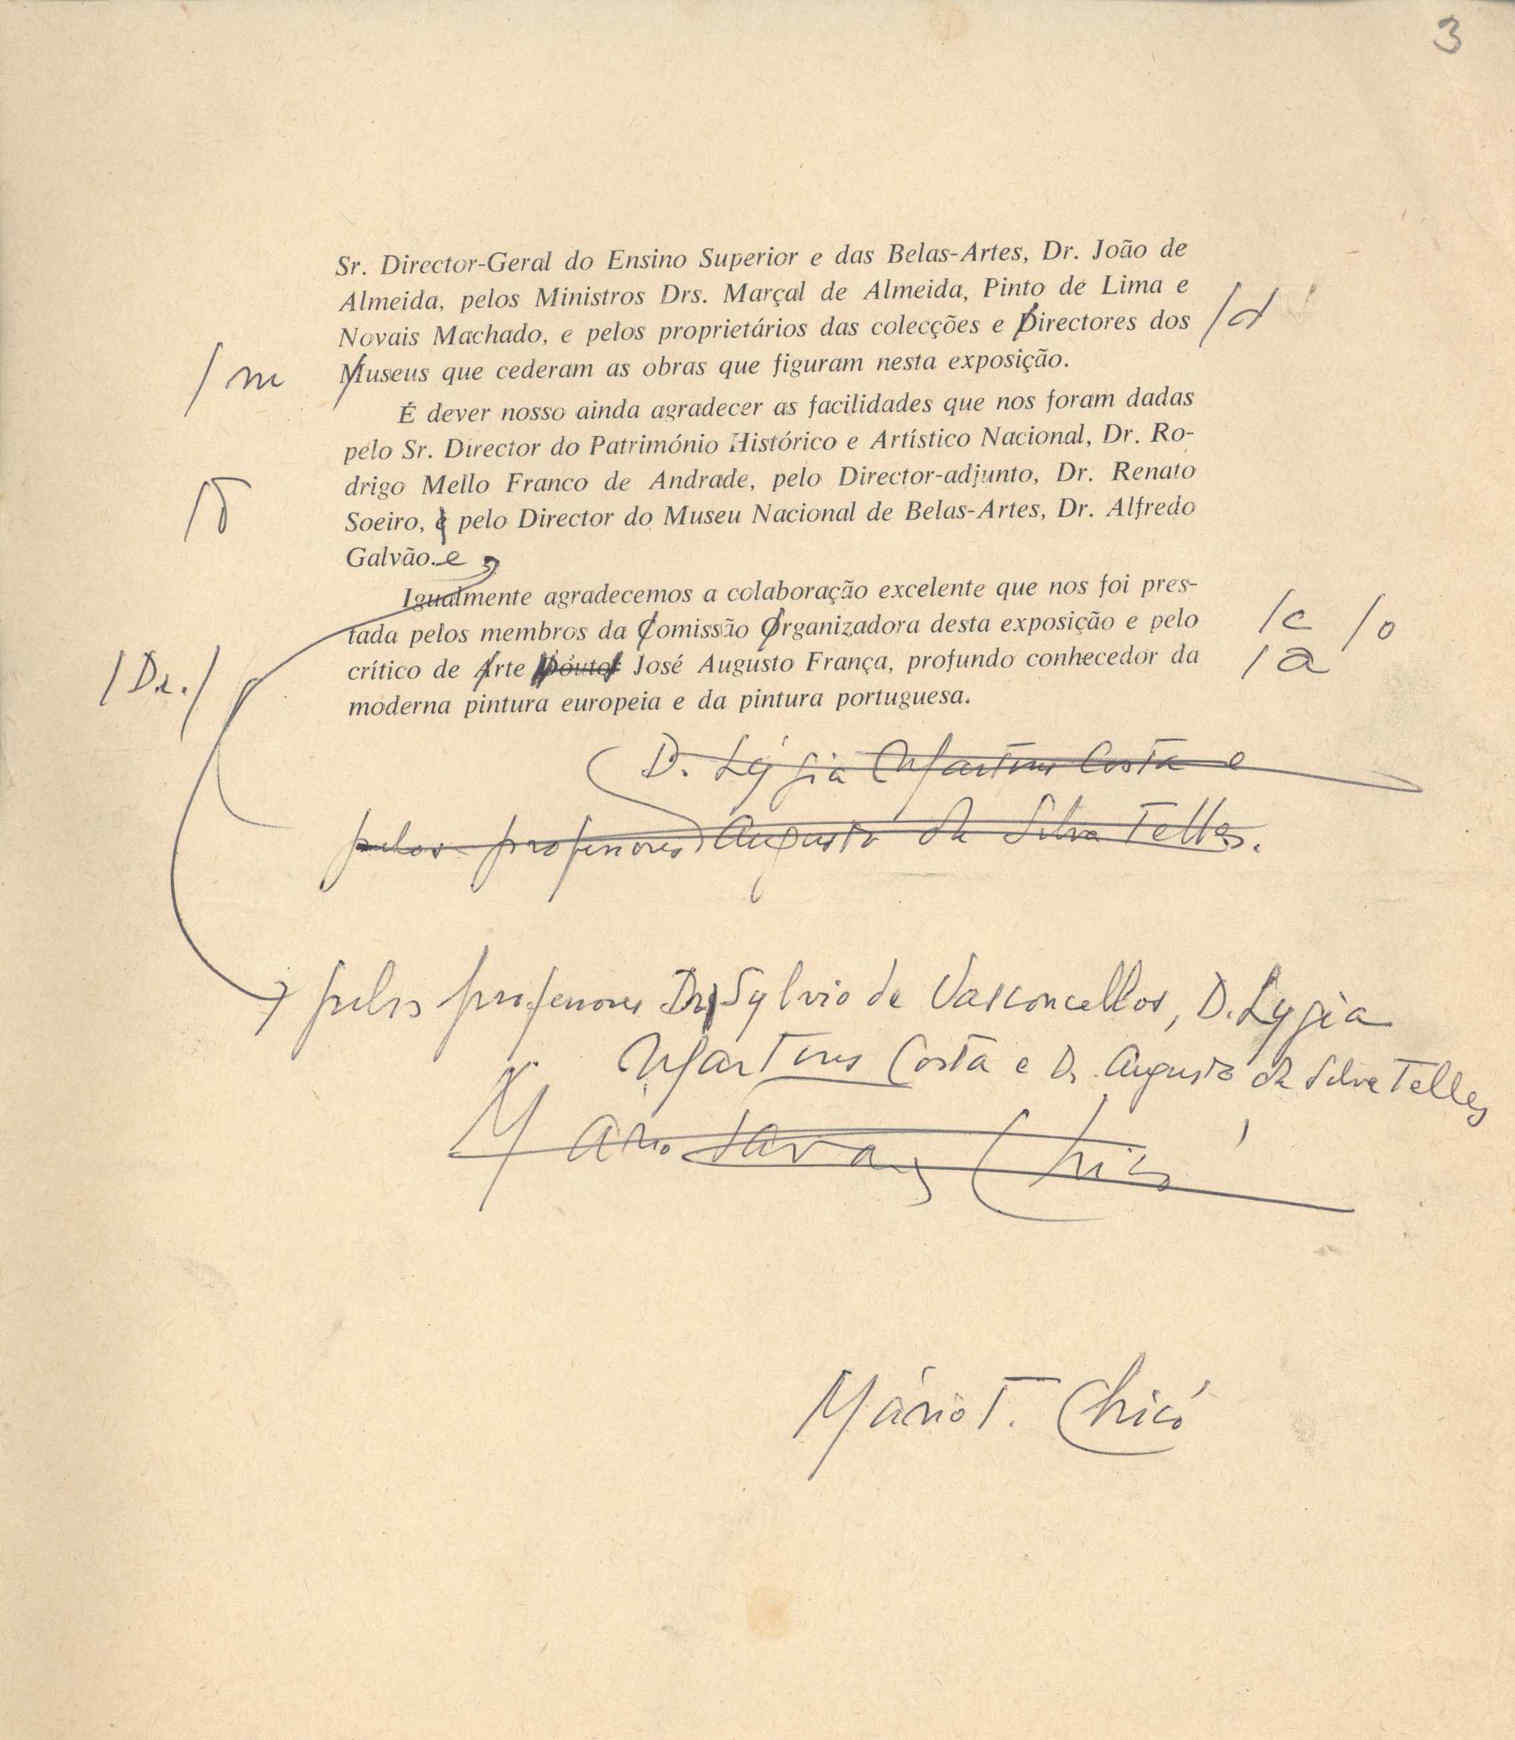 3
Sr. Director-Geral do Ensino Superior e das Belas-Artes, Dr. João de
Almeida, pelos Ministros Drs. Marçal de Almeida, Pinto de Lima e
Novais Machado, e pelos proprietários das colecções e Directores dos /d
/m Museus que cederam as obras que figuram nesta exposição.
É dever nosso ainda agradecer as facilidades que nos foram dadas
pelo Sr. Director do Património Histórico e Artístico Nacional, Dr. Ro-
drigo Mello Franco de Andrade, pelo Director-adjunto, Dr. Renato
Soeiro, e pelo Director do Museu Nacional de Belas-Artes, Dr. Alfredo
Galvão. e
Igualmente agradecemos a colaboração excelente que nos foi pres-
tada pelos membros da Comissão Organizadora desta exposição e pelo /c /o
/Dr./ crítico de Arte Doutor José Augusto França, profundo conhecedor da /a
moderna pintura europeia e da pintura portuguesa.
D. Lygia Martins Costa e
pelos professores Augusto da Silva Telles.
pelos professores Dr. Sylvio de Vasconcellos, D. Lygia
Martins Costa e Dr. Augusto da Silva Telles
Mário Tavares Chicó
Mário T. Chicó